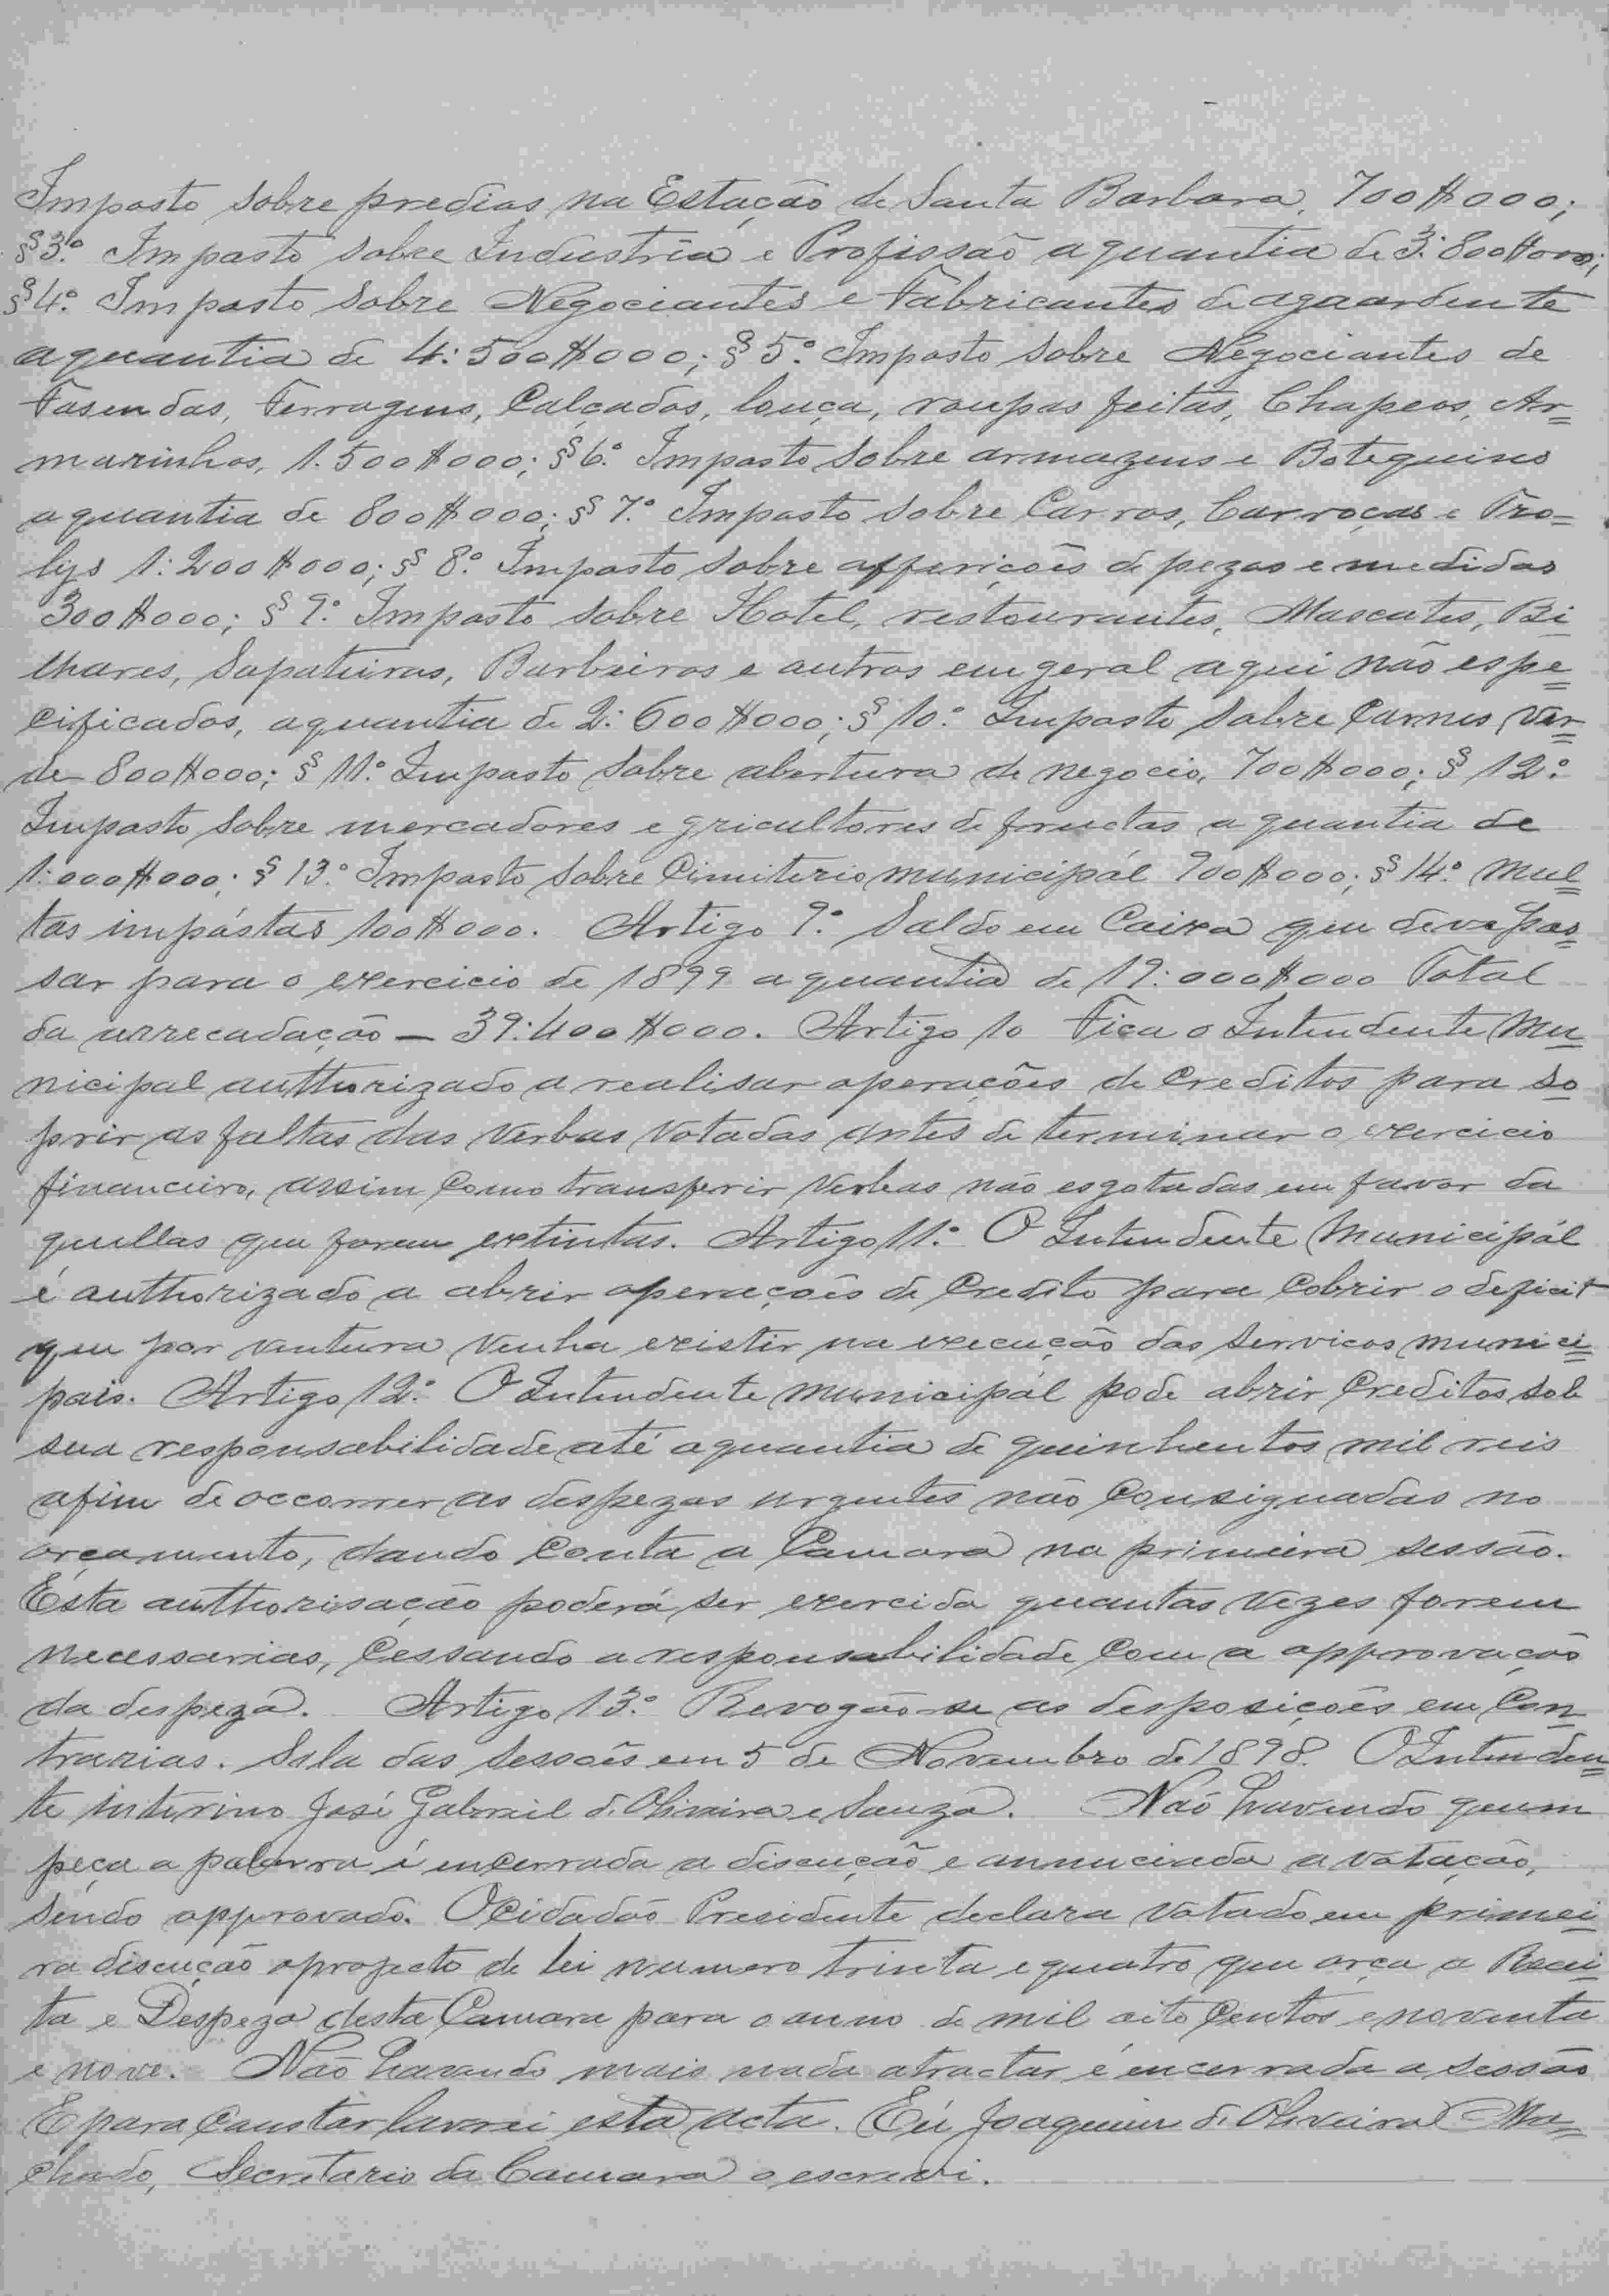 Imposto sobre predios na Estação de Santa Barbara, 700$000;
§3.º Imposto sobre Industria e Profissão a quantia de 3:800$000;
§4.º Imposto sobre Negociantes e Fabricantes de aguardente
a quantia de 4:500$000; §5.º Imposto sobre Negociantes de
Fasendas, Ferragens, Calçados, louça, roupas feitas, Chapeos, Ar=
marinhos, 1.500$000; §6.º Imposto sobre armazens e Botequins
a quantia de 800$000; §7.º Imposto sobre Carros, Carroças e Tro=
lys 1:200$000; § 8.º Imposto sobre afferições de pezos e medidas
300$000; § 9.º Imposto sobre Hotel, restourantes, Mascates, Bi
lhares, Sapateiros, Barbeiros e outros em geral aqui não espe=
cificados, a quantia de 2:600$000; § 10.º Imposto sobre Carnes Ver=
de 800$000; § 11.º Imposto sobre abertura de negocio, 700$000; § 12.º
Imposto sobre mercadores e gricultores de fructas a quantia de
1:000$000; § 13.º Imposto sobre Cimiterio municipál 900$000; § 14.º Mul=
tas impóstas 100$000. Artigo 9.º Saldo em Caixa que deve pas=
sar para o exercicio de 1899 a quantia de 19:000$000 Total
da arrecadação — 39:400$000. Artigo 10 Fica o Intendente Mu=
nicipal authorizado a realisar operações de Creditos para so
prir as faltas das Verbas Votadas antes de terminar o exercicio
financeiro, assim Como transferir Verbas não esgotadas em favor da
quellas que forem extintas. Artigo 11.º O Intendente Municipál
é authorizado a abrir operações de Credito para Cobrir o deficit
que por ventura Venha existir na execução dos serviços munici=
pais. Artigo 12.º O Intendente municipál pode abrir Creditos sob
sua responsabilidade até a quantia de quinhentos mil reis
afim de occorrer as despezas urgentes não Consignadas no
orçamento, dando Conta a Camara na primeira sessão.
Esta authorisação poderá ser exercida quantas Vezes forem
necessarias, Cessando a responsabilidade Com a approvação
da despeza. Artigo 13.º Revogão-se as desposições em Con
trarias. Sala das Sessoẽs em 5 de Novembro de 1898. O Intenden=
te interino José Gabriel d'Oliveira e Souza. Não havendo quem
peça a palavra é encerrada a discução e annunciada a votação,
sendo approvado. O Cidadão Presidente declara Votado em primei=
ra discução o projecto de lei numero trinta e quatro que orça a Recei=
ta e Despeza desta Camara para o anno de mil oito Centos e noventa
e nove. Não havendo mais nada atractar é encerrada a sessão
E para Constar lavrei esta acta. Eu Joaquim d'Oliveira Ma=
chado, Secretario da Camara o escrevi.